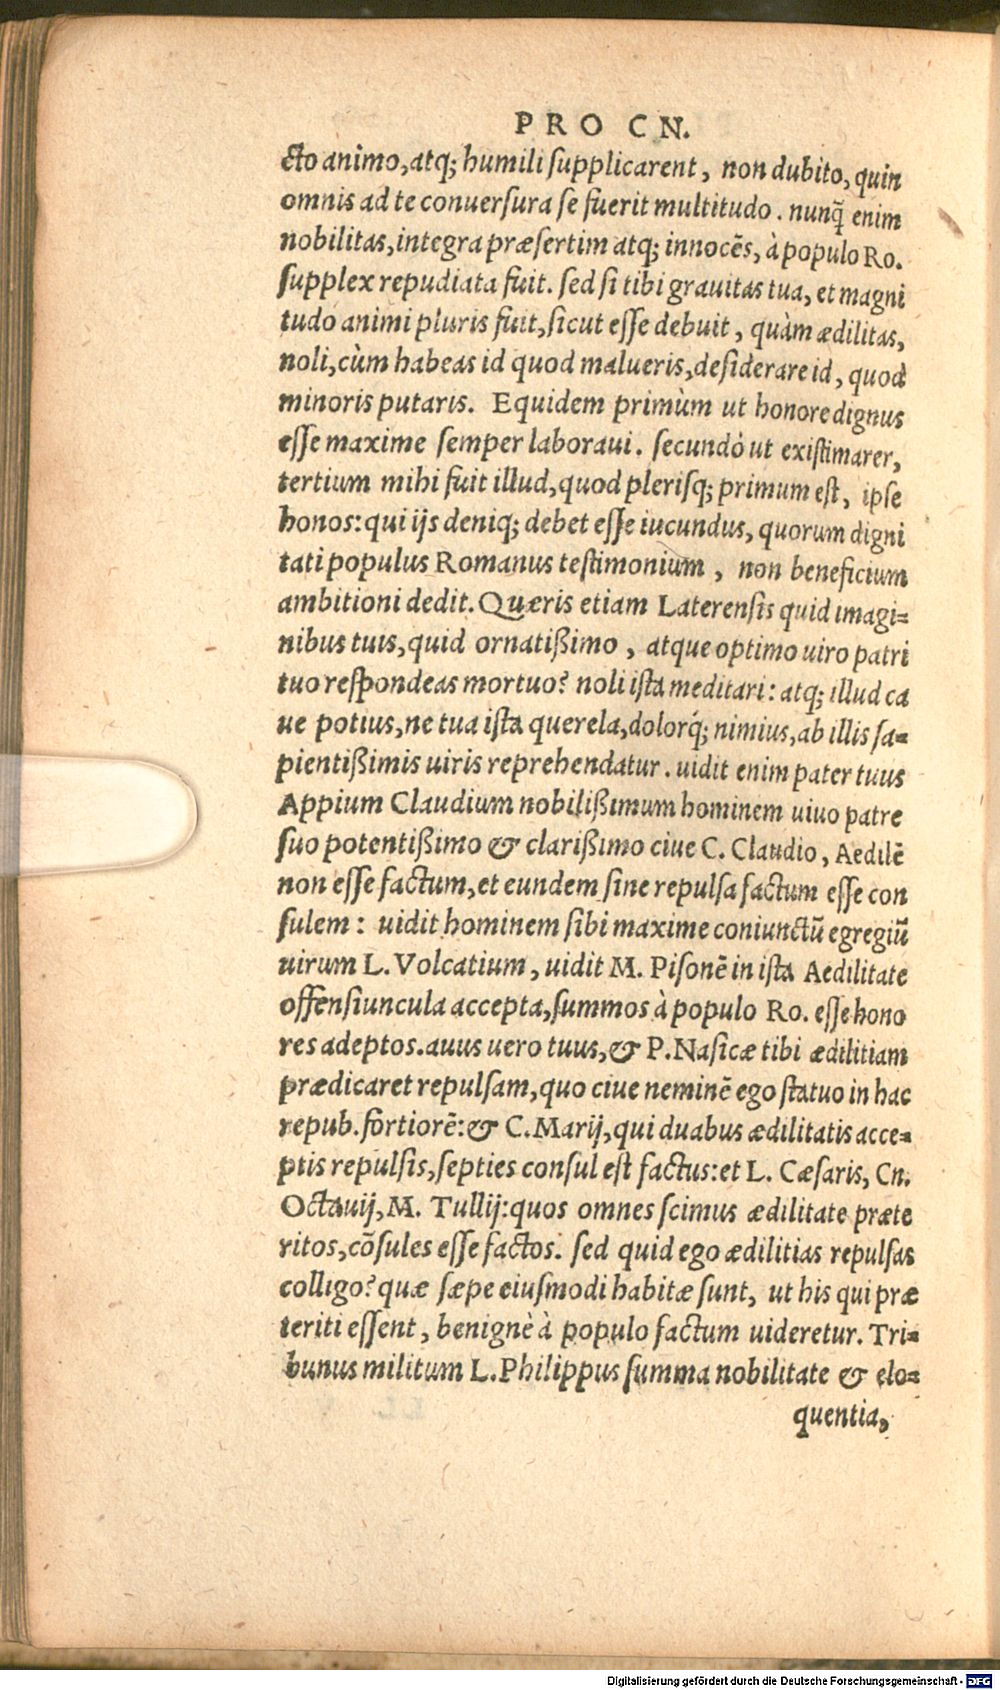 PRO CN.
cto animo, atq; humili supplicarent, non dubito, quin
omnis ad te conuersura se fuerit multitudo. nunq̃ enim
nobilitas, integra præsertim atq; innocẽs, à populo Ro.
supplex repudiata fuit. sed si tibi grauitas tua, et magni
tudo animi pluris fuit, sicut esse debuit, quàm ædilitas,
noli, cùm habeas id quod malueris, desiderare id, quod
minoris putaris. Equidem primùm ut honore dignus
esse maxime semper laboraui. secundò ut existimarer,
tertium mihi fuit illud, quod plerisq; primum est, ipse
honos: qui ijs deniq; debet esse iucundus, quorum digni
tati populus Romanus testimonium, non beneficium
ambitioni dedit. Quæris etiam Laterensis quid imagi=
nibus tuis, quid ornatißimo, atque optimo uiro patri
tuo respondeas mortuo? noli ista meditari: atq; illud ca
ue potius, ne tua ista querela, dolorq́; nimius, ab illis sa=
pientißimis uiris reprehendatur. uidit enim pater tuus
Appium Claudium nobilißimum hominem uiuo patre
suo potentißimo & clarißimo ciue C. Claudio, Aedilẽ
non esse factum, et eundem sine repulsa factum esse con
sulem: uidit hominem sibi maxime coniunctũ egregiũ
uirum L. Volcatium, uidit M. Pisonẽ in ista Aedilitate
offensiuncula accepta, summos à populo Ro. esse hono
res adeptos. auus uero tuus, & P. Nasicæ tibi ædilitiam
prædicaret repulsam, quo ciue neminẽ ego statuo in hac
repub. fortiorẽ: & C. Marij, qui duabus ædilitatis acce=
ptis repulsis, septies consul est factus: et L. Cæsaris, Cn.
Octauij, M. Tullij: quos omnes scimus ædilitate præte
ritos, cõsules esse factos. sed quid ego ædilitias repulsas
colligo? quæ sæpe eiusmodi habitæ sunt, ut his qui præ
teriti essent, benignè à populo factum uideretur. Tri=
bunus militum L. Philippus summa nobilitate & elo=
quentia,
Digitalisierung gefördert durch die Deutsche Forschungsgemeinschaft - DFG